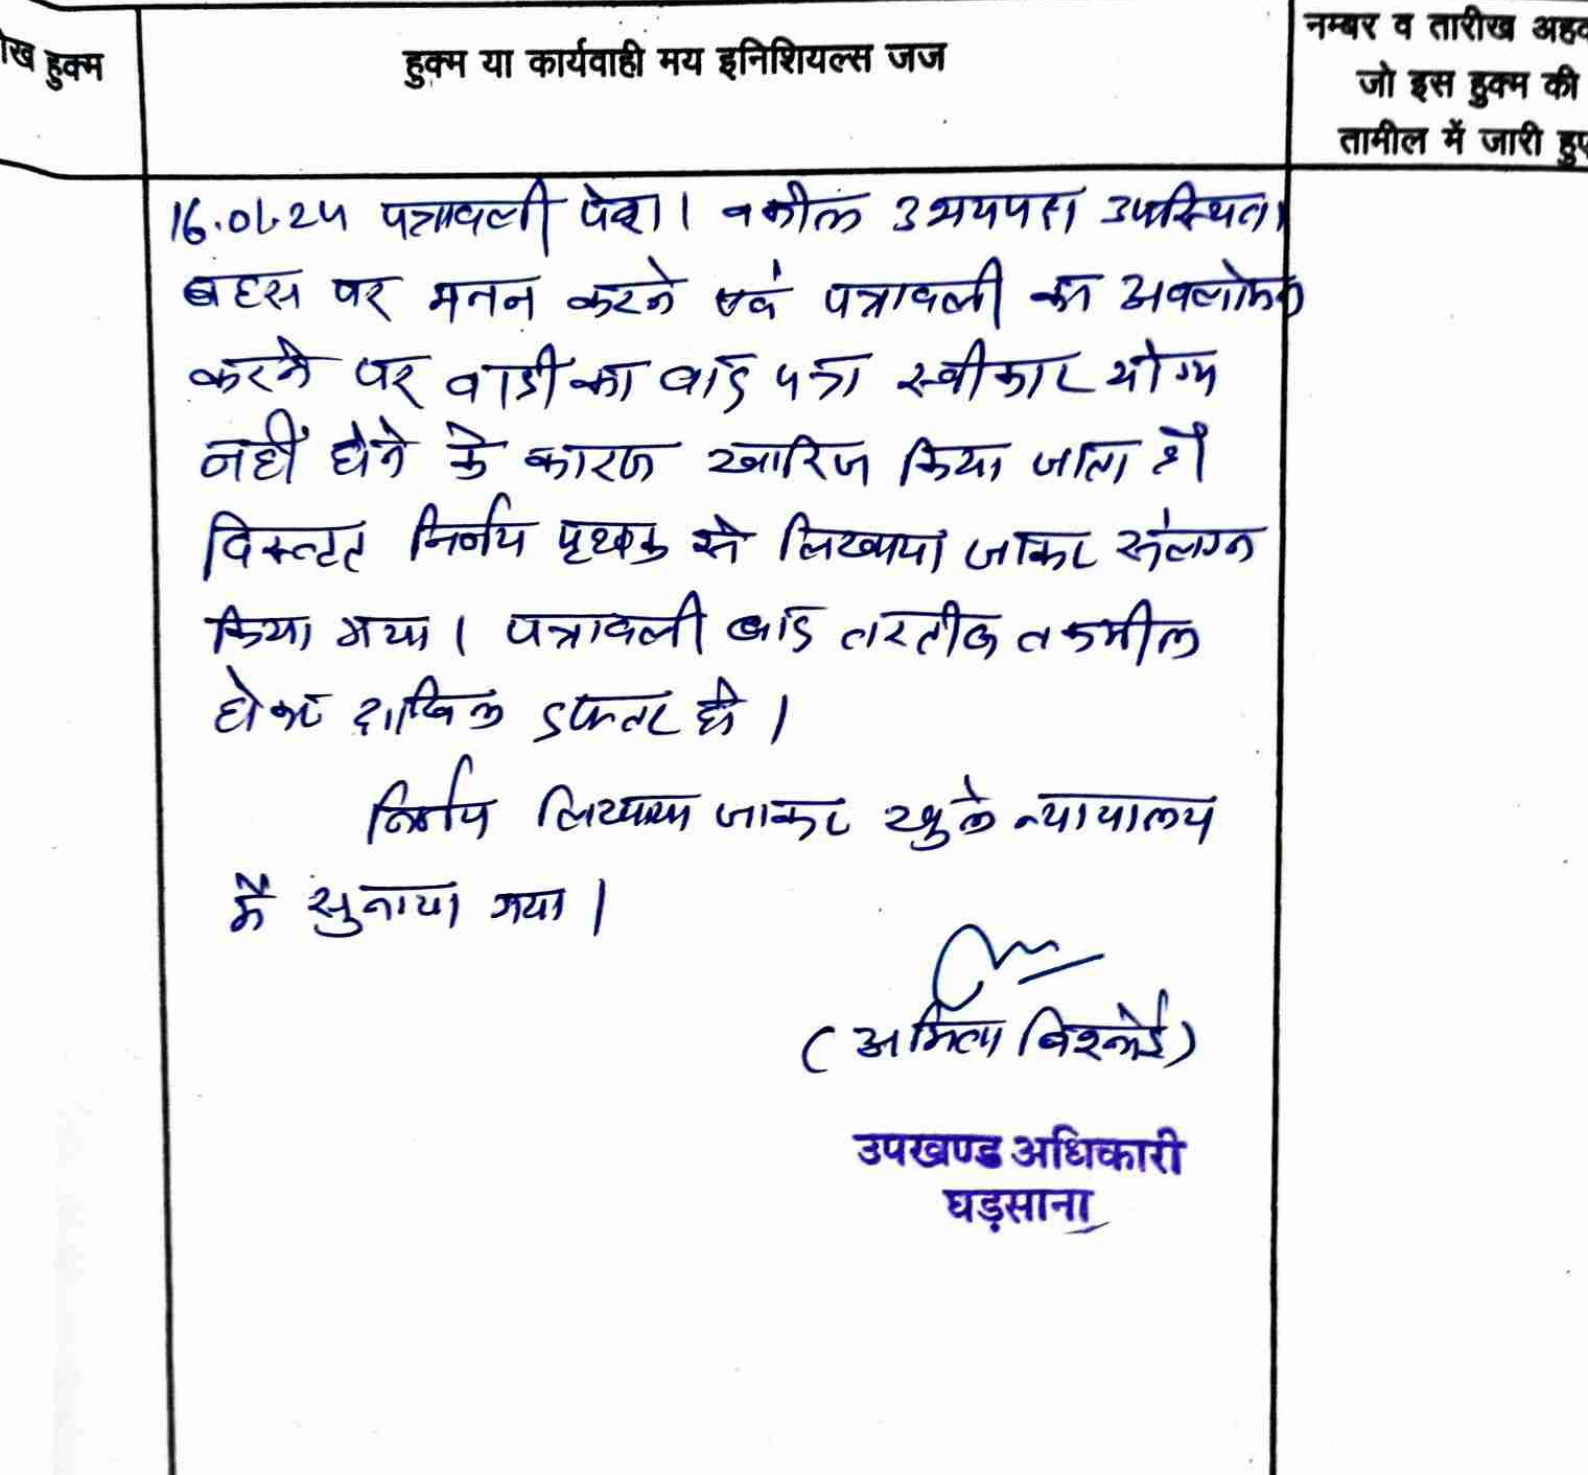 हुक्म
हुक्म या कार्यवाही मय इनिशियल्स जज
नम्बर व तारीख
जो इस हुक्म की
तामील में जारी
16.01.24 पत्रावली पेश। वकील उभयपक्ष उपस्थित।
बहस पर मनन करने एवं पत्रावली का अवलोकन
करने पर वादी का वाद पत्र स्वीकार योग्य
नहीं होने के कारण खारिज किया जाता है।
विस्तृत निर्णय पृथक से लिखाया जाकर संलग्न
किया गया। पत्रावली बाद तरतीब तकमील
होकर दाखिल दफ्तर हो।
निर्णय लिखाया जाकर खुले न्यायालय
में सुनाया गया।
(अमिता बिश्नोई)
उपखण्ड अधिकारी
घड़साना